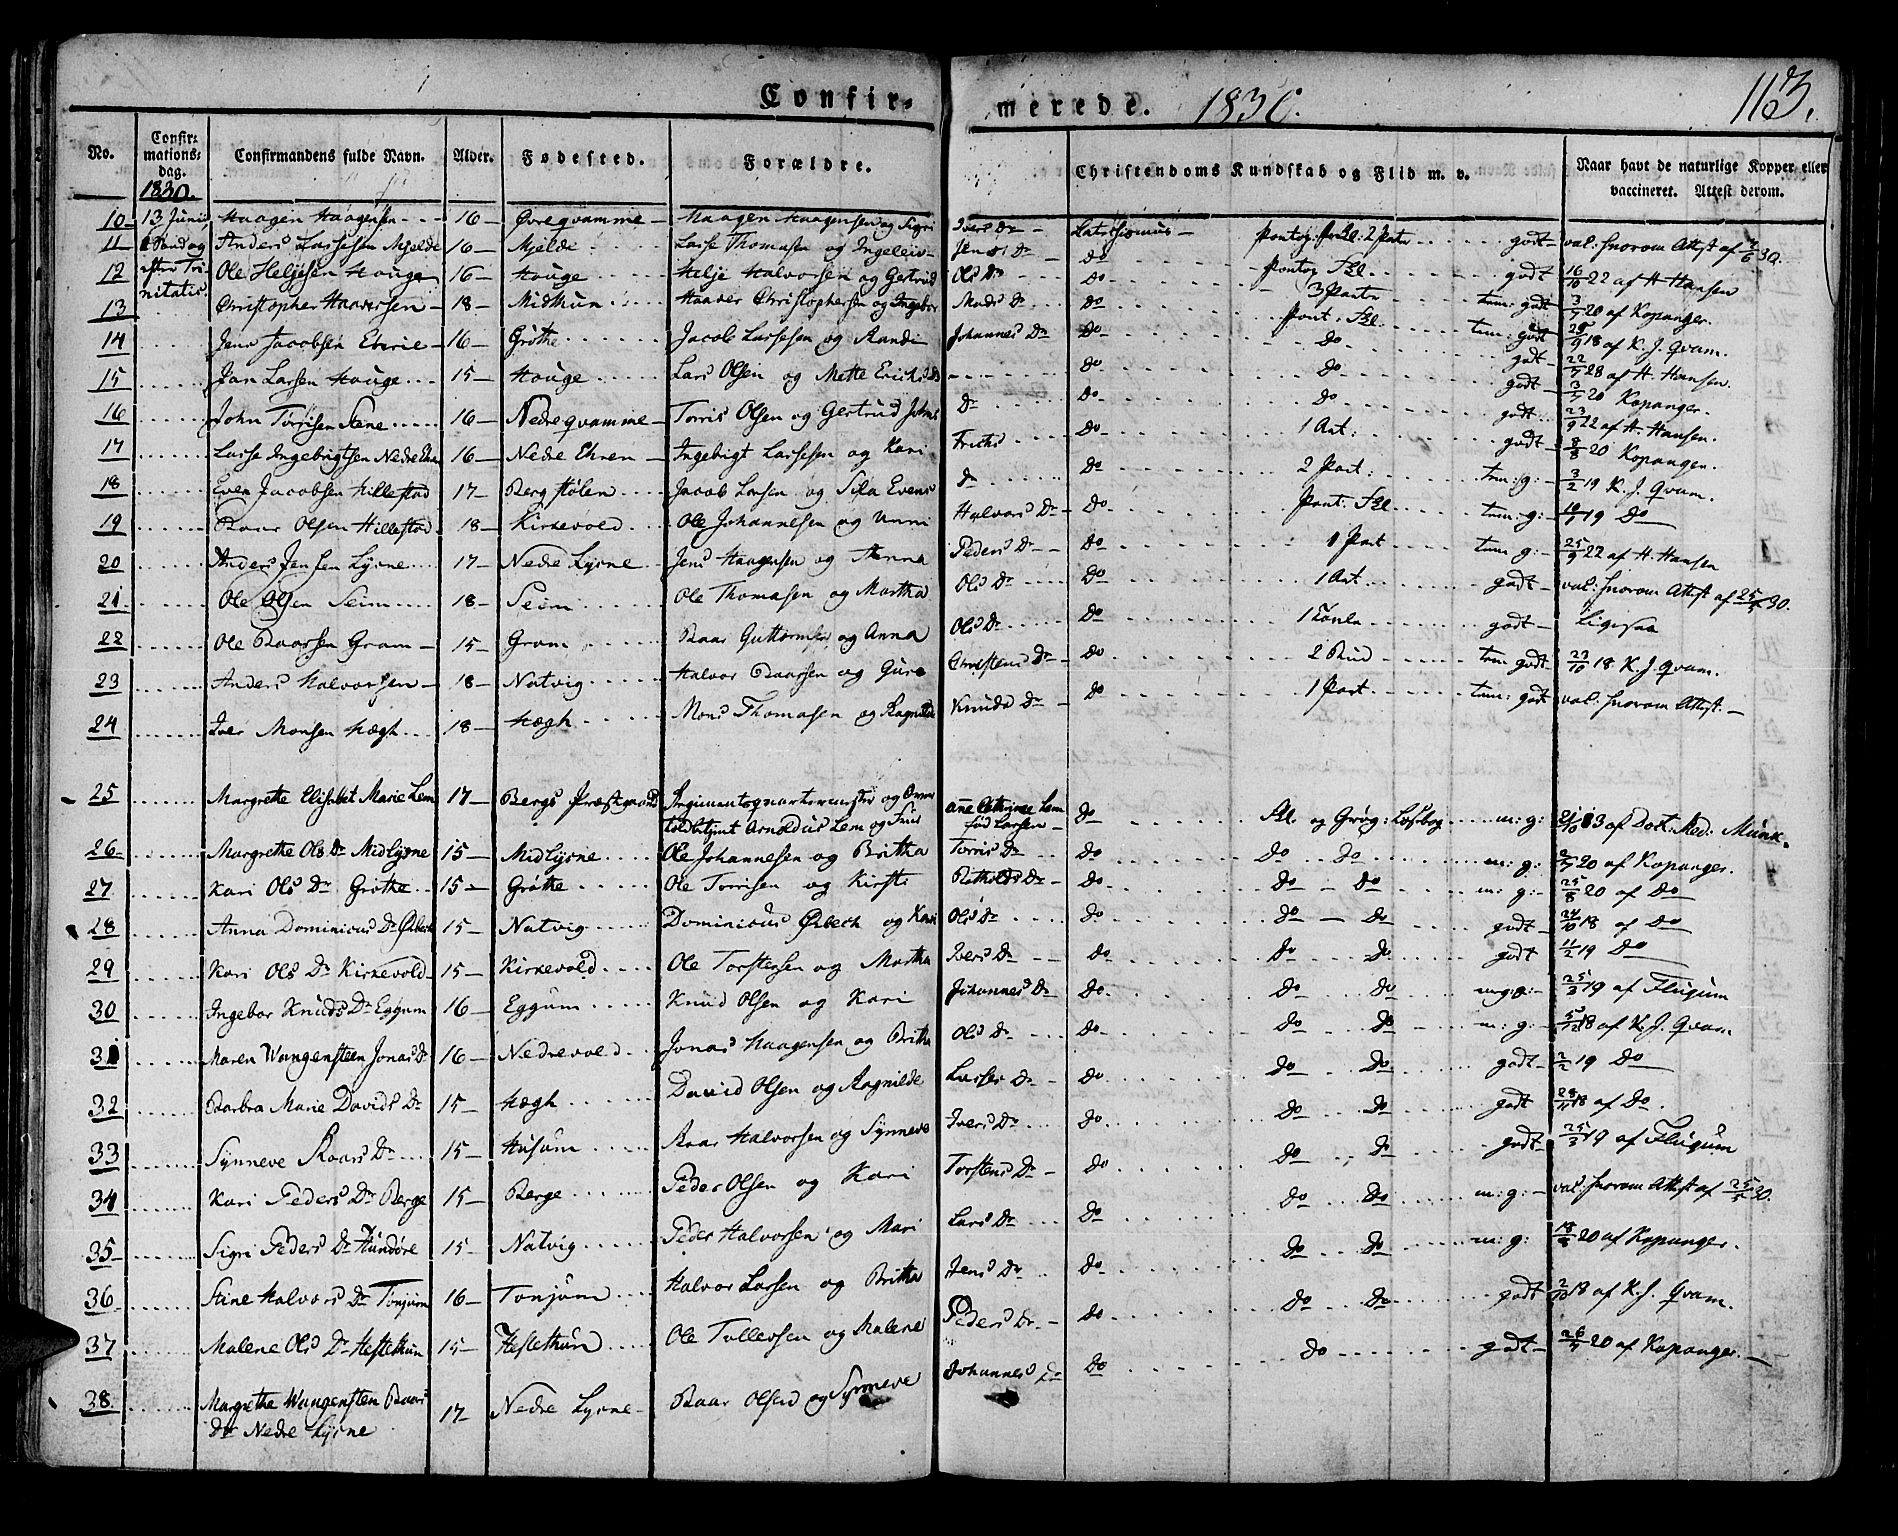 Confirmerede. 1830. 113.
No. Confirmations-dag. Confirmandens fulde Navn. Alder. Fødested. Forældre. Christendoms Kundskab og Flid m. v. Naar havt de naturlige Kopper eller vaccineret. Attest derom.
1830.
10 13 Junii, Haagen Haagensen 16 Øvreqvamme Haagen Haagensen og Sigri Ivers Dr Catechismus godt
11 Søndag Anders Lassesen Mjelde 16 Mjelde Lasse Thomasen og Ingeleiv Jensis Dr do godt
12 efter Tri- Ole Heljesen Houge 16 Houge Helje Halvorsen og Gertrud Ols Dr do tem: godt 16/10 22 af H Hansen
13 nitatis. Christopher Haaversen 18 Midthun Haaver Christophersen og Ingebor Mads Dr do 3 Parter tem: godt 3/7 20 af Kopanger.
14 Jens Jacobsen 16 Grøthe Jacob Lassesen og Randi Johannes Dr do Pont. Fkl. godt 18 af K. J. Qvam.
15 Jan Larsen Houge 15 Houge Lars Olsen og Mette Erichs Dr do do godt 22/7 28 af H. Hansen.
16 John Torrisen Stene 16 Nedreqvamme Torris Olsen og Gertrud Johns Dr do do godt 3/7 20 Kopanger.
17 Lasse Ingebrigtsen Nedre Ehren 16 Nedre Ehren Ingebrigt Lassesen og Kari Friths do 1 Art: godt 23/9 22 af H. Hansen.
18 Even Jacobsen Hillestad 17 Bergstølen Jacob Larsen og Sila Evens Dr do 2 Part: tem: g: 8/8 20 Kopanger.
19 Baar Olsen Hillestad 18 Kirkevold Ole Johannesen og Unni Halvors Dr do Pont. Fkl tem: g: 3/2 19 K. J. Qvam.
20 Anders Jensen Lysne 17 Nedre Lysne Jens Haagensen og Anna Peders Dr do 1 Part tem g: 19 Do
21 Ole Olsen Seim 18 Seim Ole Thomasen og Martha Ols Dr do 1 Art. godt 25/9 22 af H. Hansen
22 Ole Baarsen Gram 15 Gram Baar Guttormsen og Anna Ols Dr do godt
23 Anders Halvorsen 18 Natvig Halvor Baarsen og Guro Christens Dr do 2 Bud tem: godt 23/10 18. K. J. Qvam.
24 Iver Monsen Hægh 18 Hægh Mons Thomasen og Ragnilde Knuds Dr do 1 Part tem: godt
25 Margrethe Elisabet Marie Lem 17 Bergs Præstegaard Regimentsqvarteermester og
Toldbetjent Arnoldus Lem og Frue Ane Cathrine Lem
fød Larsen do Fkl. og Grøg: Læsebog m: g: 13 af Doct: Med: Munk.
26 Margrethe Ols Dr Midlysne 15 Midlysne Ole Johannesen og Britha Torris Dr do do do m: g: 2/7 20 af Kopanger.
27 Kari Ols Dr Grøthe 15 Grøthe Ole Torrisen og Kirsti Botholds Dr do do do m: g: 25/8 20 af Do
28 Anna Dominicus Dr Ørbech 15 Natvig Dominicus Ørbech og Kari Ols Dr do do do godt 24/10 18 af Do
29 Kari Ols Dr Kirkevold 15 Kirkevold Ole Torstensen og Martha Ivers Dr do do do godt 11/2 19 Do
30 Ingebor Knuds Dr Eggum 16 Eggum Knud Olsen og Kari Johannes Dr do do do m: g: 25/3 19 af Flugum
31 Maren Wangensteen Jonas Dr 16 Nedrevold Jonas Haagensen og Britha Ols Dr do do do m: g: 5/12 18 af K. J. Qvam
32 Barbra Marie Davids Dr 15 Hægh David Olsen og Ragnilde Lasses Dr do do do godt 2/2 19 Do
33 Synneve Baars Dr 15 Husum Baar Halvorsen og Synneve Ivers Dr do do do godt 18 af Do.
34 Kari Peders Dr Berge 15 Berge Peder Olsen og Kari Torstens Dr do do do godt 25/3 19 af Flugum
35 Sigri Peders Dr Hundøre 15 Natvig Peder Halvorsen og Mari Lars Dr do do do m: g: val: Attest af 25/5 30.
36 Stine Halvors Dr Tønjum 16 Tonjum Halvor Larsen og Britha Jens Dr do do do m: g: 18/8 20 af Kopanger.
37 Malene Ols Dr Heslethun 15 Heslethun Ole Tollevsen og Malene Peders Dr do do do godt 2/10 18 af K. J. Qvam.
38. Margrethe Wangensten Baars 17 Nedre Lysne Baar Olsen og Synneve Johannes Dr do do godt 26/7 20 af Kopanger.
Dr Nedre Lysne